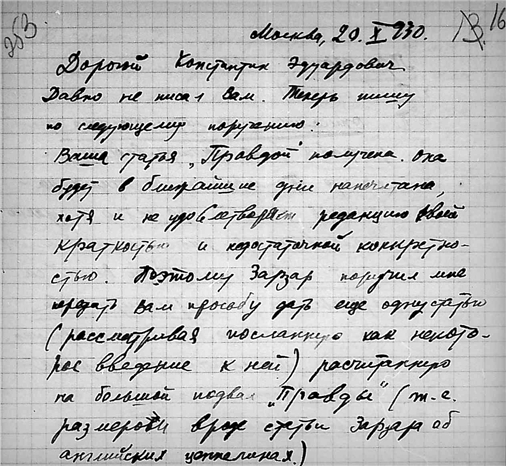 253
Москва, 20.X 930.
16
Дорогой Константин Эдуардович
Давно не писал Вам. Теперь пишу
по следующему поручению:
Ваша статья „Правдой" получена. Она
будет в ближайшие дни напечатана,
хотя и не удовлетворяет редакцию своей
краткостью и недостаточной конкретно-
стью. Поэтому Зарзар поручил мне
передать Вам просьбу дать еще одну статью
(рассматривая посланную как некото-
рое введение к ней) расчитанную
на большой подвал „Правды" (т.е.
размеров вроде статьи Зарзара об
английских цеппелинах.)